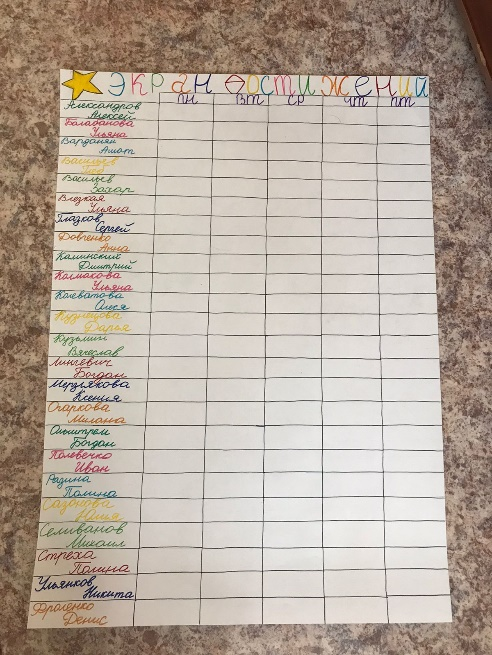 Экран достижений
пн вт ср чт пт
Александров
Алексей
Баладанова
Ульяна
Варданян
Ашот
Васильев
Васильев
Захар
Влезкая
Ульяна
Глазков
Сергей
Довченко
Анна
Каминский
Дмитрий
Колмакова
Ульяна
Колеватова
Олеся
Кузнецова
Дарья
Кузьмин
Вячеслав
Лингевич
Богдан
Мерзлякова
Ксения
Опаркова
Милана
Богдан
Полевечко
Иван
Разина
Полина
Сазонова
Юлия
Селиванов
Михаил
Стреха
Полина
Ульянков
Никита
Фроленко
Денис